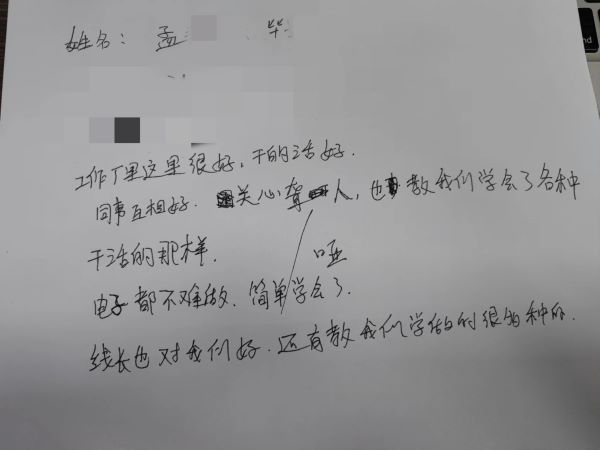 姓名：孟 毕
工作厂里这里很好，干的活好．
同事互相好． 关心聋哑人，也教我们学会了各种
干活的那样．
电子都不难做．简单学会了．
线长也对我们好．还有教我们学做的很多种的．